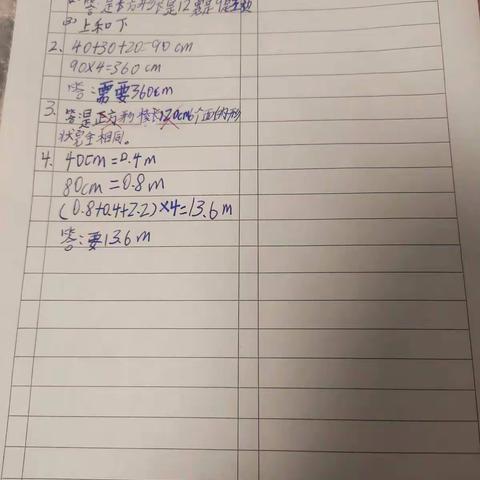 答是长方形长是12宽是9
(3) 上和下
2. 40+30+20=90cm
90×4=360cm
答:需要360cm
3. 答是正方形棱长120cm6个面的形
状完全相同。
4. 40cm=0.4m
80cm=0.8m
(0.8+0.4+2.2)×4=13.6m
答:要13.6m